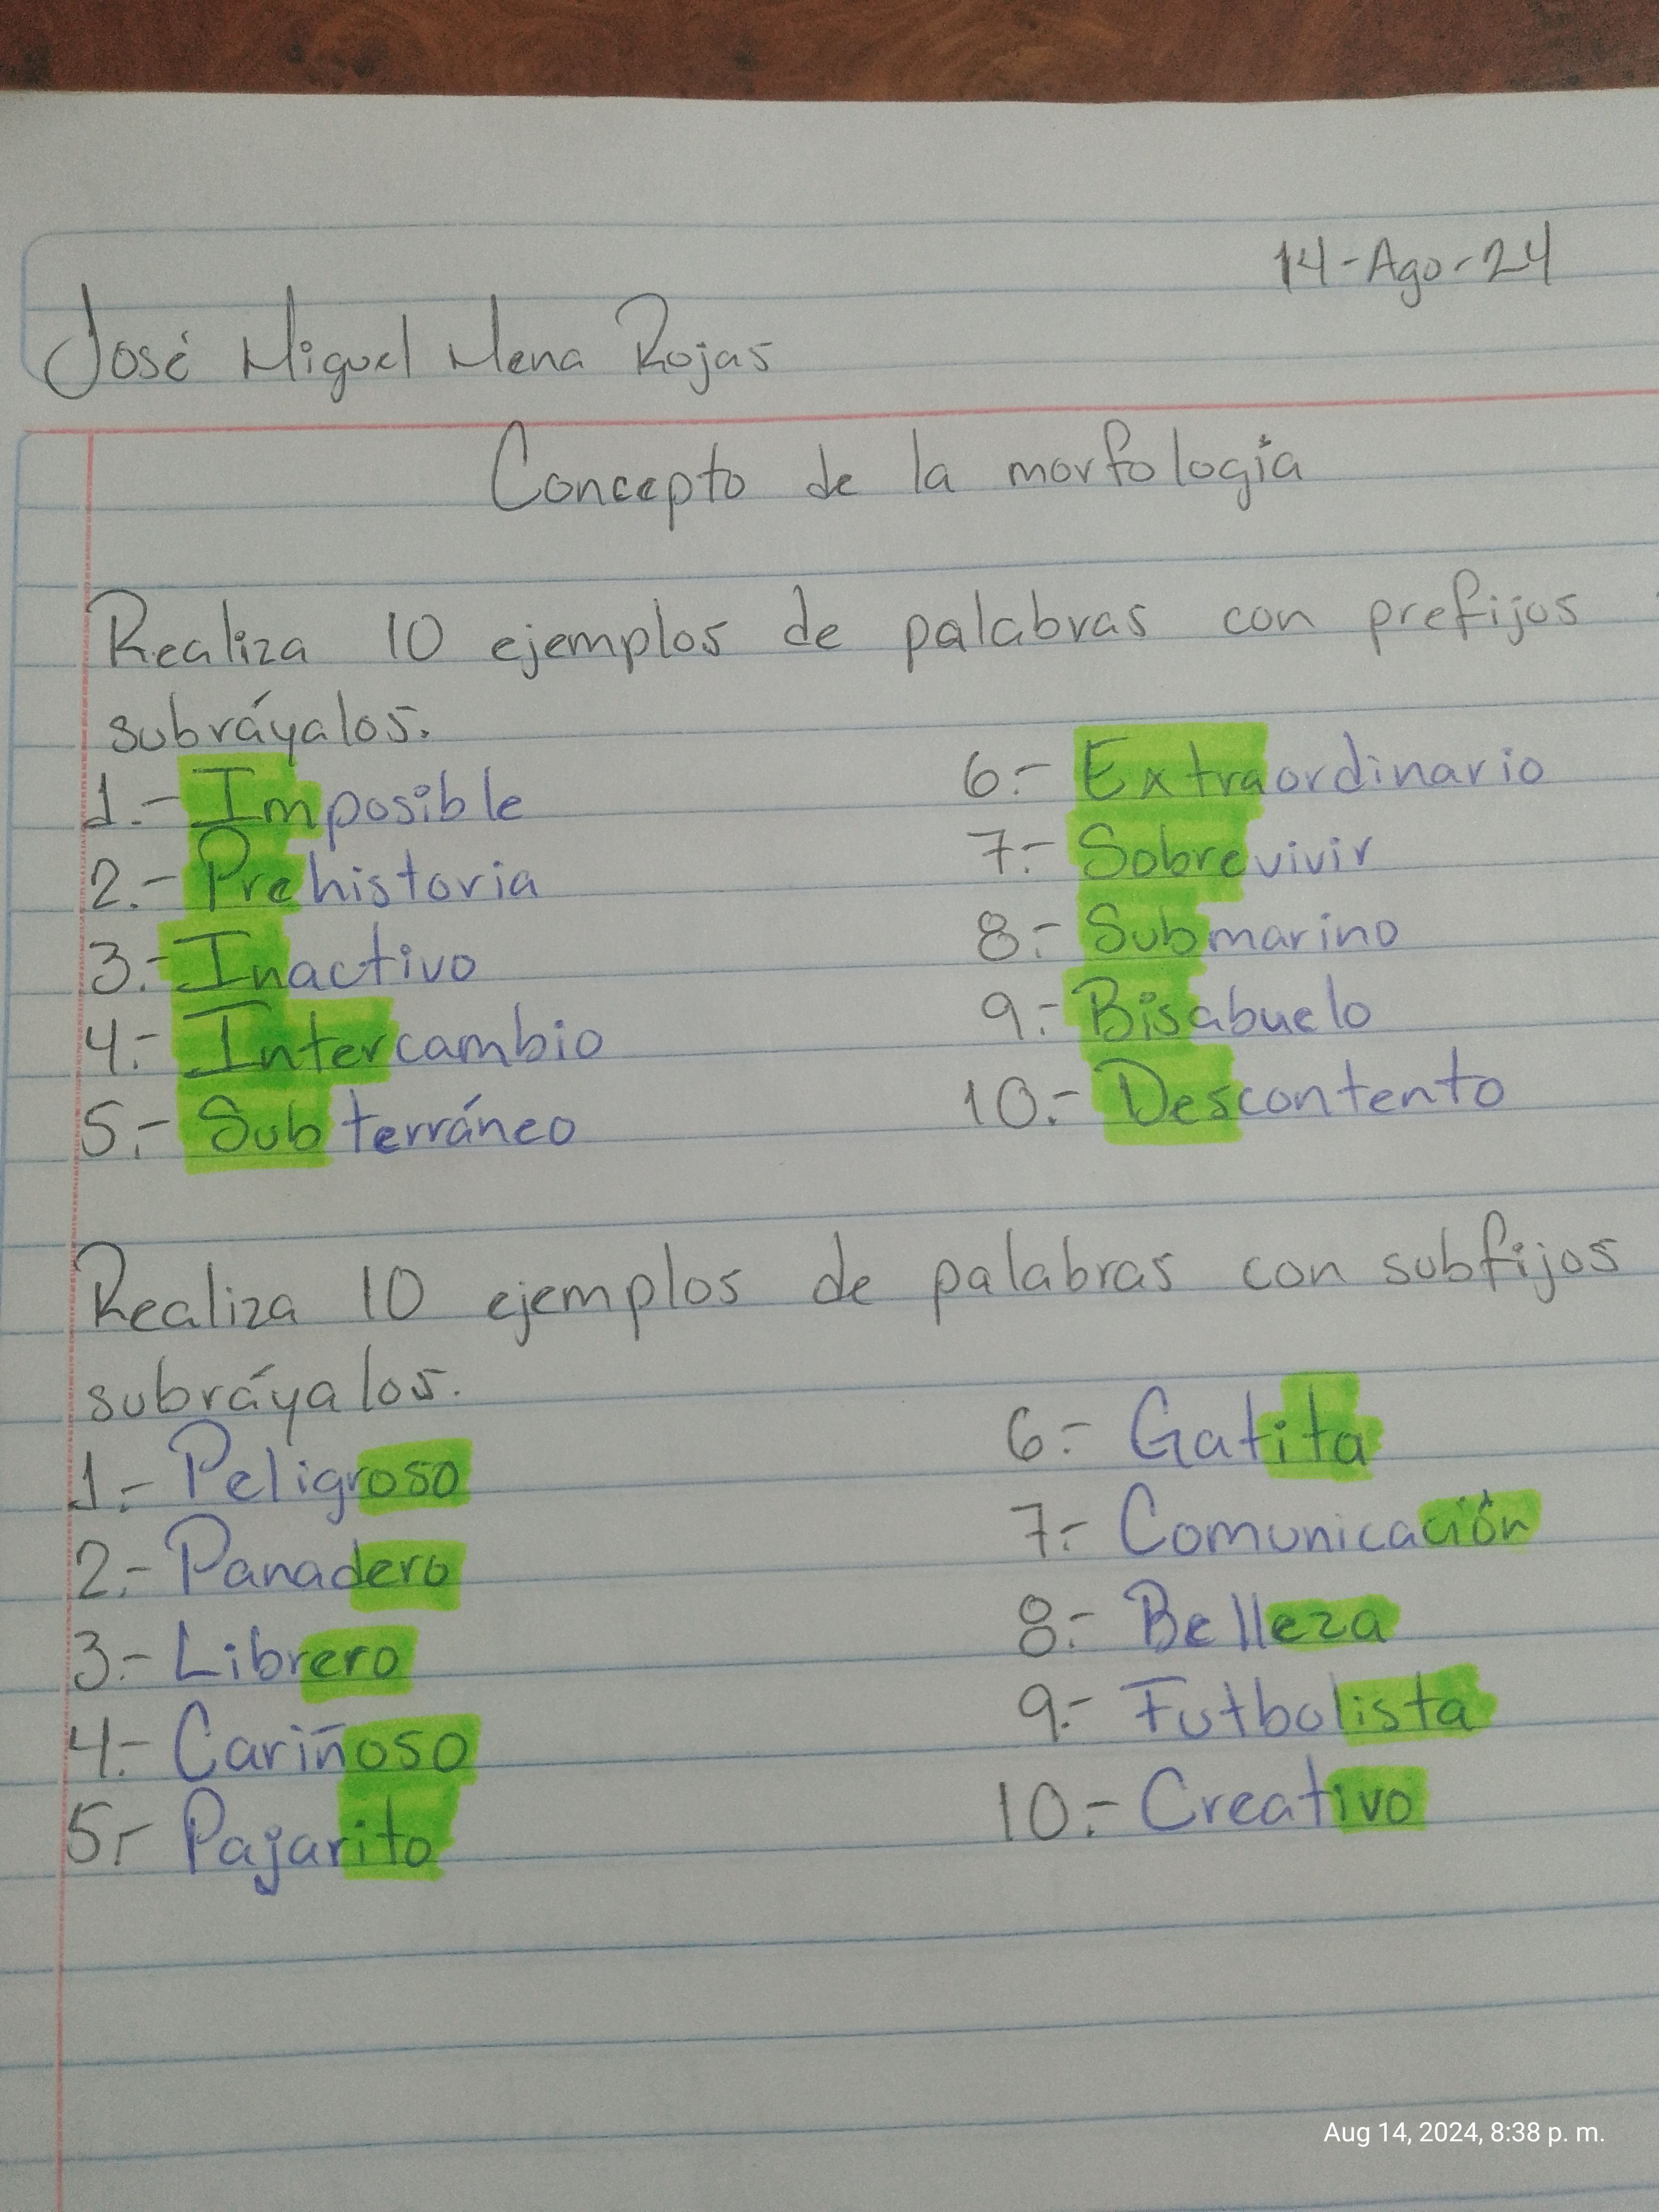 14-Ago-24
José Miguel Mena Rojas
Concepto de la morfología
Realiza 10 ejemplos de palabras con prefijos
subráyalos.
1.- Imposible
2.- Prehistoria
3.- Inactivo
4.- Intercambio
5.- Subterráneo
6.- Extraordinario
7.- Sobrevivir
8.- Submarino
9.- Bisabuelo
10.- Descontento
Realiza 10 ejemplos de palabras con subfijos
subráyalos.
1.- Peligroso
2.- Panadero
3.- Librero
4.- Cariñoso
5.- Pajarito
6.- Gatita
7.- Comunicación
8.- Belleza
9.- Futbolista
10.- Creativo
Aug 14, 2024, 8:38 p. m.